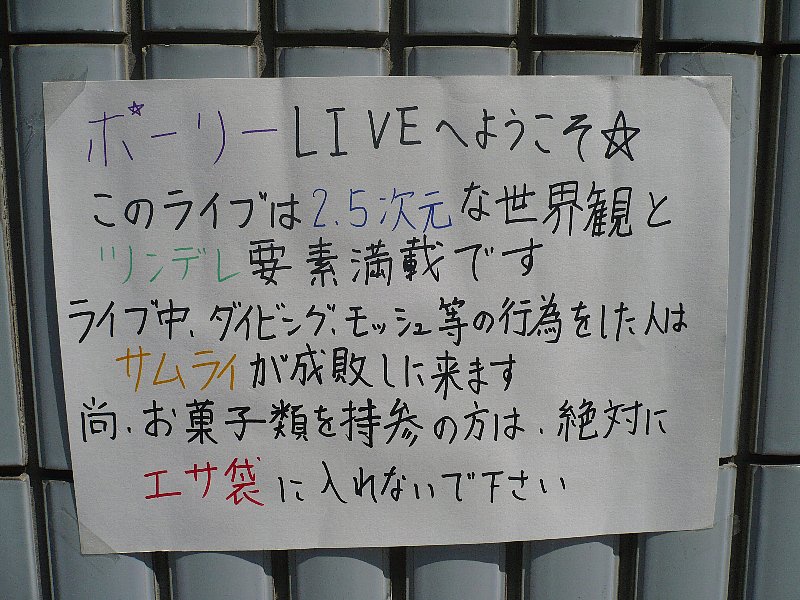 ポーリーLIVEへようこそ☆
このライブは2.5次元な世界観と
ツンデレ要素満載です
ライブ中、ダイビング、モッシュ等の行為をした人は
サムライが成敗しに来ます
尚、お菓子類を持参の方は、絶対に
エサ袋に入れないで下さい